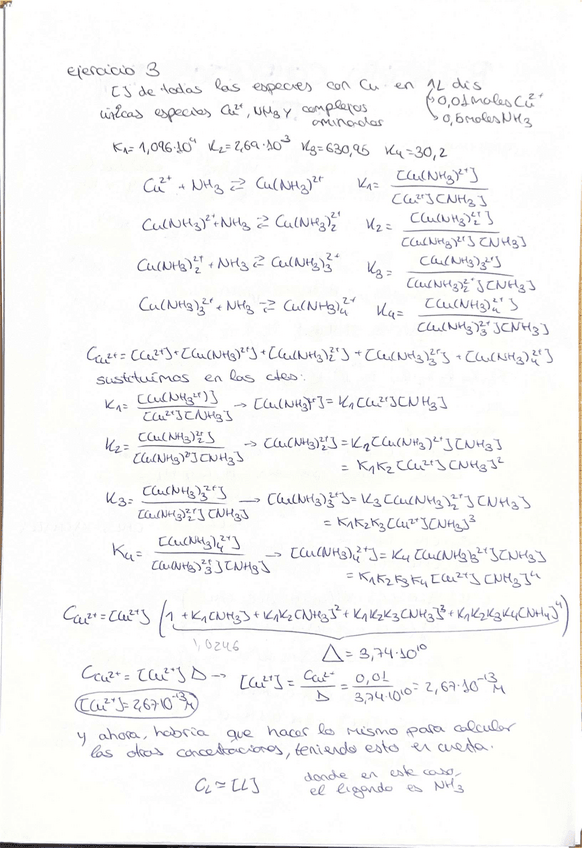 ejercicio 3
[] de todas las especies con Cu en 1L dis
→ 0,01 moles Cu²⁺
únicas especies Cu²⁺, NH₃ y complejos aminados
→ 0,5 moles NH₃
K₁=1,096·10⁴ K₂=2,69·10⁻³ K₃=630,95 K₄=30,2
Cu²⁺ + NH₃ ⇄ Cu(NH₃)²⁺ K₁= [Cu(NH₃)²⁺] / [Cu²⁺][NH₃]
Cu(NH₃)²⁺+NH₃ ⇄ Cu(NH₃)₂²⁺ K₂= [Cu(NH₃)₂²⁺] / [Cu(NH₃)²⁺][NH₃]
Cu(NH₃)₂²⁺ + NH₃ ⇄ Cu(NH₃)₃²⁺ K₃= [Cu(NH₃)₃²⁺] / [Cu(NH₃)₂²⁺][NH₃]
Cu(NH₃)₃²⁺ + NH₃ ⇄ Cu(NH₃)₄²⁺ K₄= [Cu(NH₃)₄²⁺] / [Cu(NH₃)₃²⁺][NH₃]
C_Cu²⁺ = [Cu²⁺]+[Cu(NH₃)²⁺]+[Cu(NH₃)₂²⁺] + [Cu(NH₃)₃²⁺] + [Cu(NH₃)₄²⁺]
sustituímos en las ctes:
K₁= [Cu(NH₃²⁺)] / [Cu²⁺][NH₃] → [Cu(NH₃)²⁺] = K₁[Cu²⁺][NH₃]
K₂= [Cu(NH₃)₂²⁺] / [Cu(NH₃)²⁺][NH₃] → [Cu(NH₃)₂²⁺] = K₂[Cu(NH₃)²⁺][NH₃]
= K₁K₂[Cu²⁺][NH₃]²
K₃= [Cu(NH₃)₃²⁺] / [Cu(NH₃)₂²⁺][NH₃] → [Cu(NH₃)₃²⁺] = K₃[Cu(NH₃)₂²⁺][NH₃]
= K₁K₂K₃[Cu²⁺][NH₃]³
K₄= [Cu(NH₃)₄²⁺] / [Cu(NH₃)₃²⁺][NH₃] → [Cu(NH₃)₄²⁺] = K₄[Cu(NH₃)₃²⁺][NH₃]
= K₁K₂K₃K₄[Cu²⁺][NH₃]⁴
C_Cu²⁺ = [Cu²⁺] (1 + K₁[NH₃] + K₁K₂[NH₃]² + K₁K₂K₃[NH₃]³ + K₁K₂K₃K₄[NH₄]⁴)
1,0246
Δ = 3,74·10¹⁰
C_Cu²⁺ = [Cu²⁺] Δ → [Cu²⁺] = C_Cu²⁺ / Δ = 0,01 / 3,74·10¹⁰ = 2,67·10⁻¹³ M
[Cu²⁺] = 2,67·10⁻¹³ M
y ahora, habría que hacer lo mismo para calcular
las otras concentraciones, teniendo esto en cuenta.
C_L ≃ [L] donde en este caso,
el ligando es NH₃